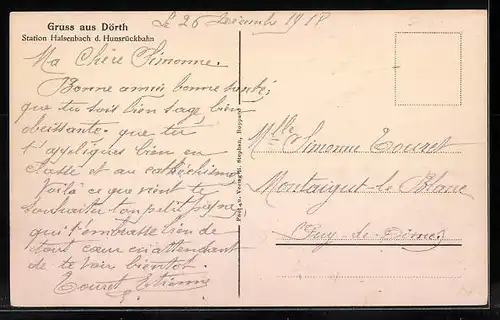 Gruss aus Dörth
Station Halsenbach d. Hunsrückbahn
Le 26 Décembre 1918
Ma Chère Simonne.
Bonne année bonne santé,
que tu sois bien sage bien
obeissante. que tu
t'appliques bien en
classe et au cathéchisme
Voilà ce que vient te
souhaiter ton petit
qui t'embrasse bien de
tout cœur en attendant
de te voir bientot.
Touret Etienne
Mlle Simonne Touret
Montaigut-le Blanc
(Puy-de-Dôme)